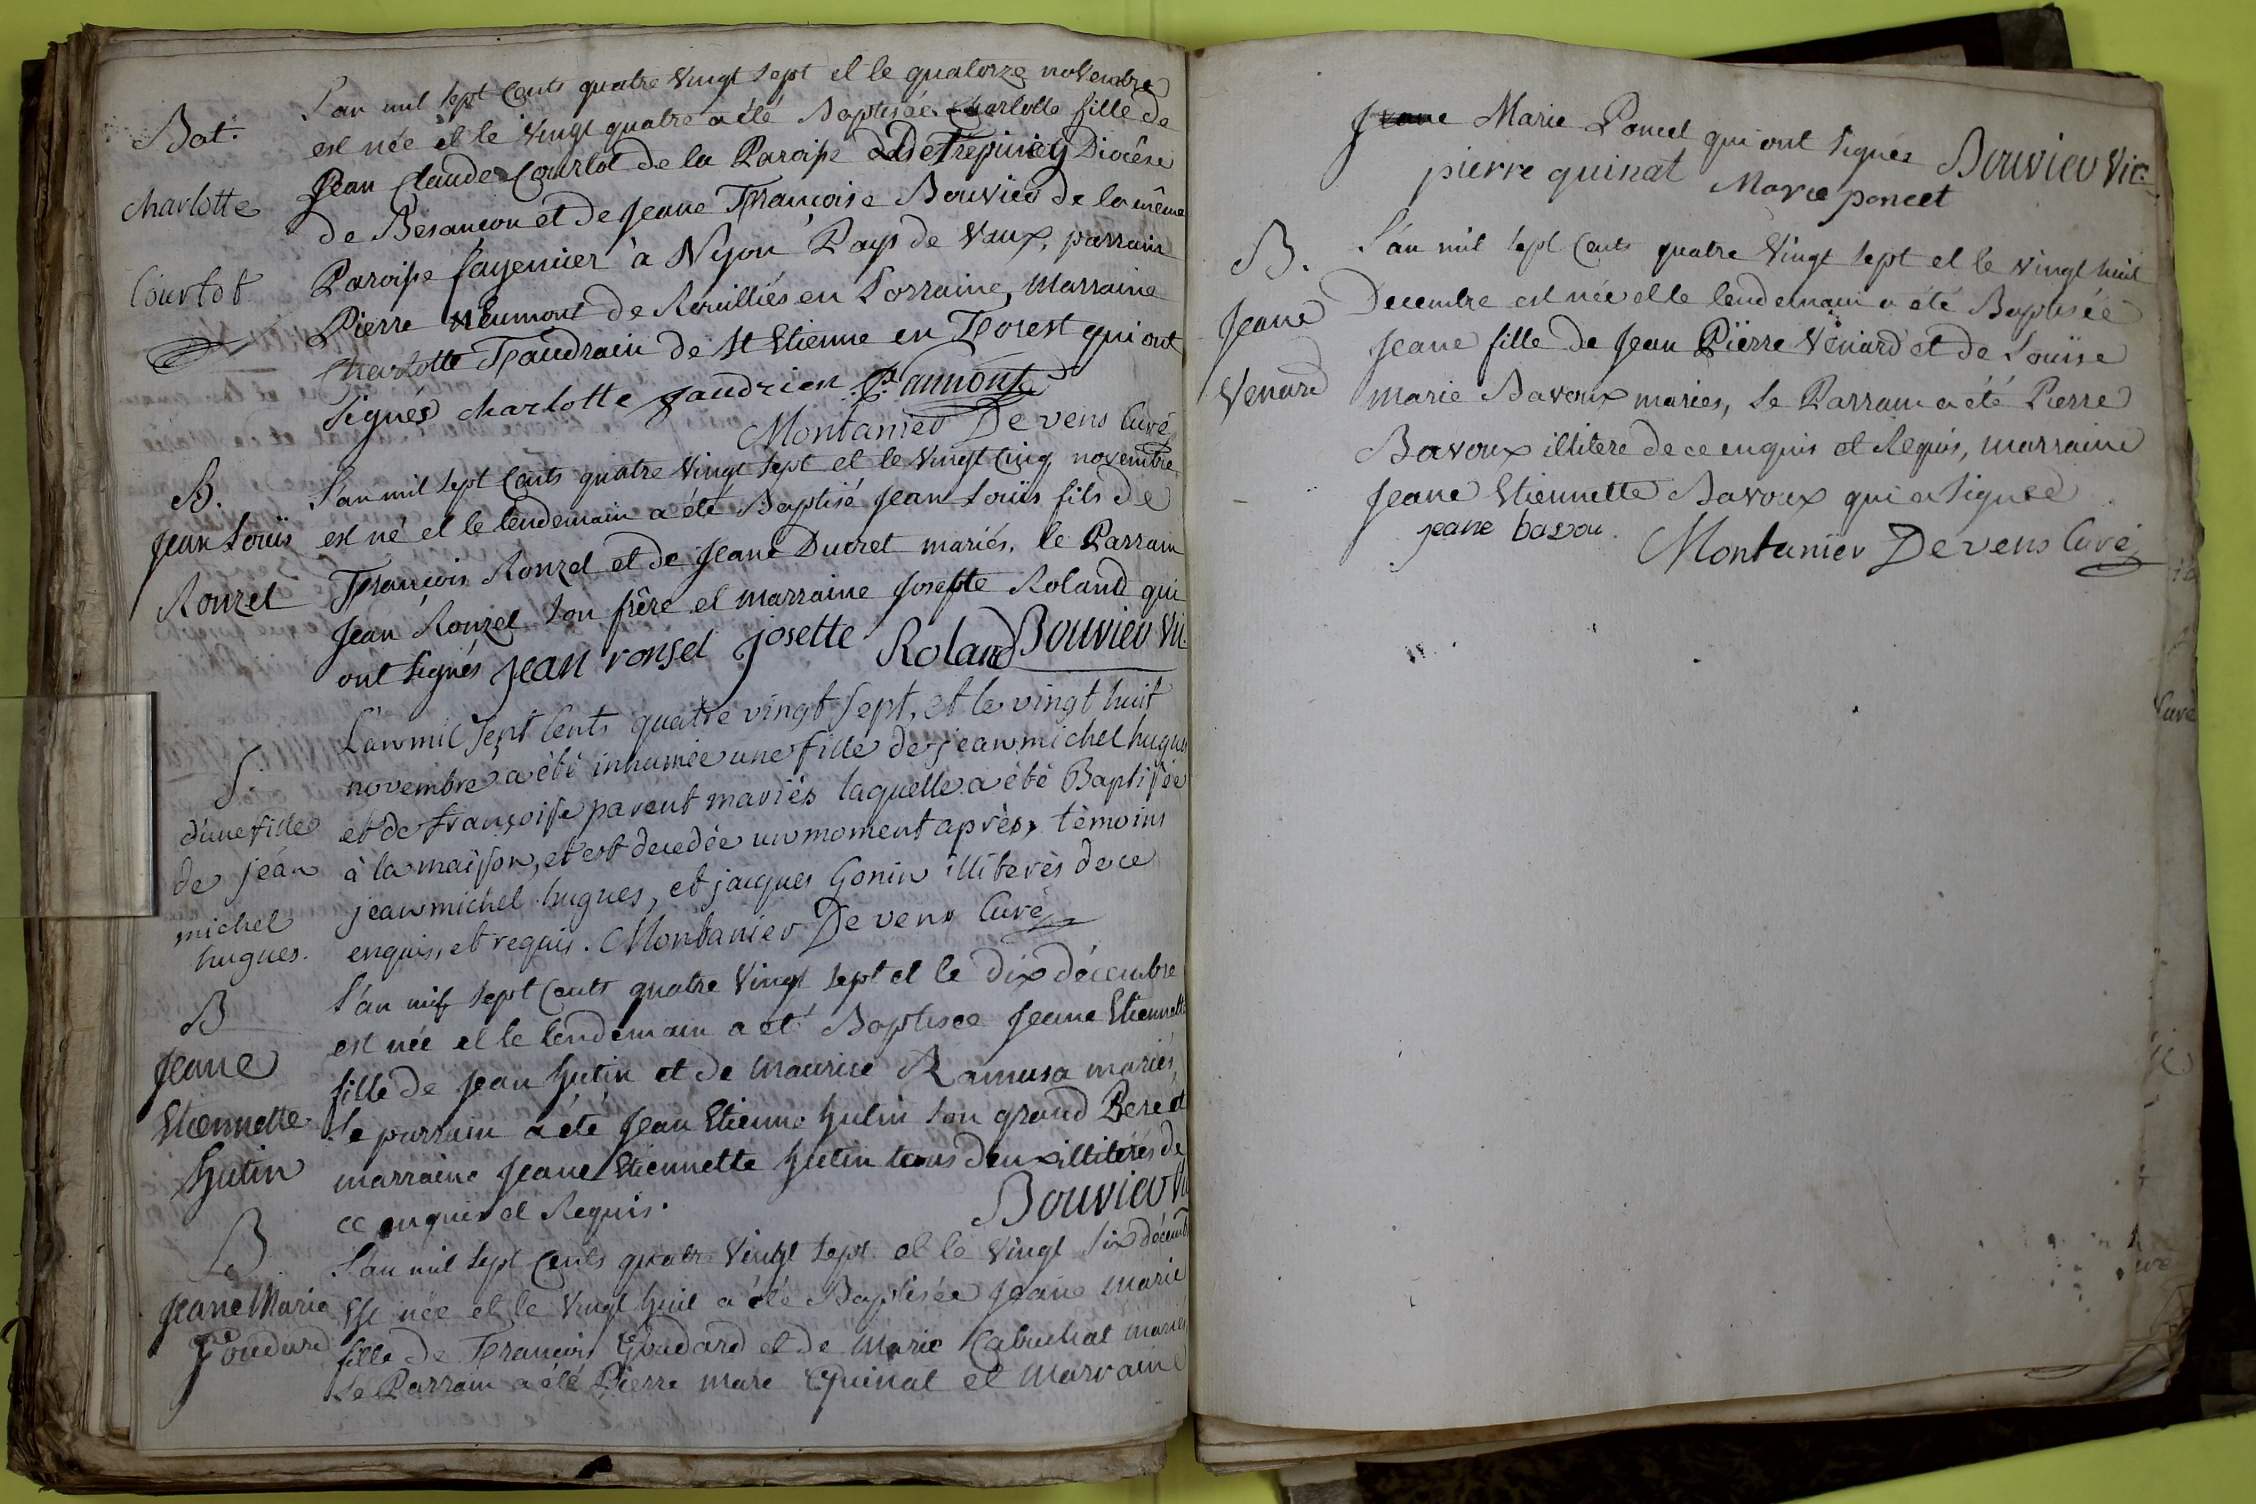 Bat.
charlotte
Courtot
L'an mil sept Cents quatre Vingt sept et le quatorze novembre
est née et le Vingt quatre a été Baptisée Charlotte fille de
Jean Claude Courlot de la Paroisse de Detrepiney Diocèse
de Besançon et de Jeane Françoise Bouvier de la même
Paroisse fayencier à Nyon Pays de Vaux, parrain
Pierre Neumont de Rouilliés en Lorraine, Marraine
Charlotte Faudrain de St Etienne en Forest qui ont
signés charlotte faudrien
Montanier De vens Curé
B.
Jean Loüis
Ronzel
L'an mil sept Cents quatre Vingt sept et le Vingt Cinq novembre
est né et le lendemain a été Baptisé Jean Loüis fils de
François Ronzel et de Jeane Ducret mariés, le Parrain
Jean Ronzel son frère et marraine Josepte Roland qui
ont signés jean ronsel josette Roland Bouvier Vic.
S.
d'une fille
de jean
michel
hugues.
L'an mil sept Cents quatre vingt sept, et le vingt huit
novembre a été inhumée une fille de jean michel hugues
et de françoise parent mariés laquelle a été Baptisée
à la maison, et est decedée un moment après, témoins
jean michel hugues, et jacques Gonin illiterés de ce
enquis, et requis. Montanier De vens Curé
B
Jeane
Etiennette
Hutin
L'an mil sept Cents quatre Vingt sept et le dix décembre
est née et le lendemain a eté Baptisée Jeane Etiennette
fille de Jean Hutin et de Maurice Ramusa mariés,
le parrain a été Jean Etienne Hutin son grand Pere et
marraine Jeane Etiennette Hutin tous deux illiterés de
ce enquis et Requis. Bouvier Vic
B
Jeane Marie
Goudard
L'an mil sept Cents quatre Vingt sept et le Vingt six décembre
Est née et le Vingt huit a été Baptisée Jeane Marie
fille de François Goudard et de Marie Cabuchat mariés
Le Parrain a été Pierre Marc Quinat et Marraine
Jeane Marie Poncet qui ont signés Bouvier Vic.
pierre quinat Marie poncet
B.
Jeane
Venard
L'an mil sept Cents quatre Vingt sept et le vingt huit
Decembre est née et le lendemain a été Baptisée
Jeane fille de Jean Pierre Venard et de Louïse
Marie Bavoux mariés, le Parrain a été Pierre
Bavoux illitere de ce enquis et Requis, marraine
Jeane Etiennette Bavoux qui a signée
jeane bavou. Montanier De vens Curé